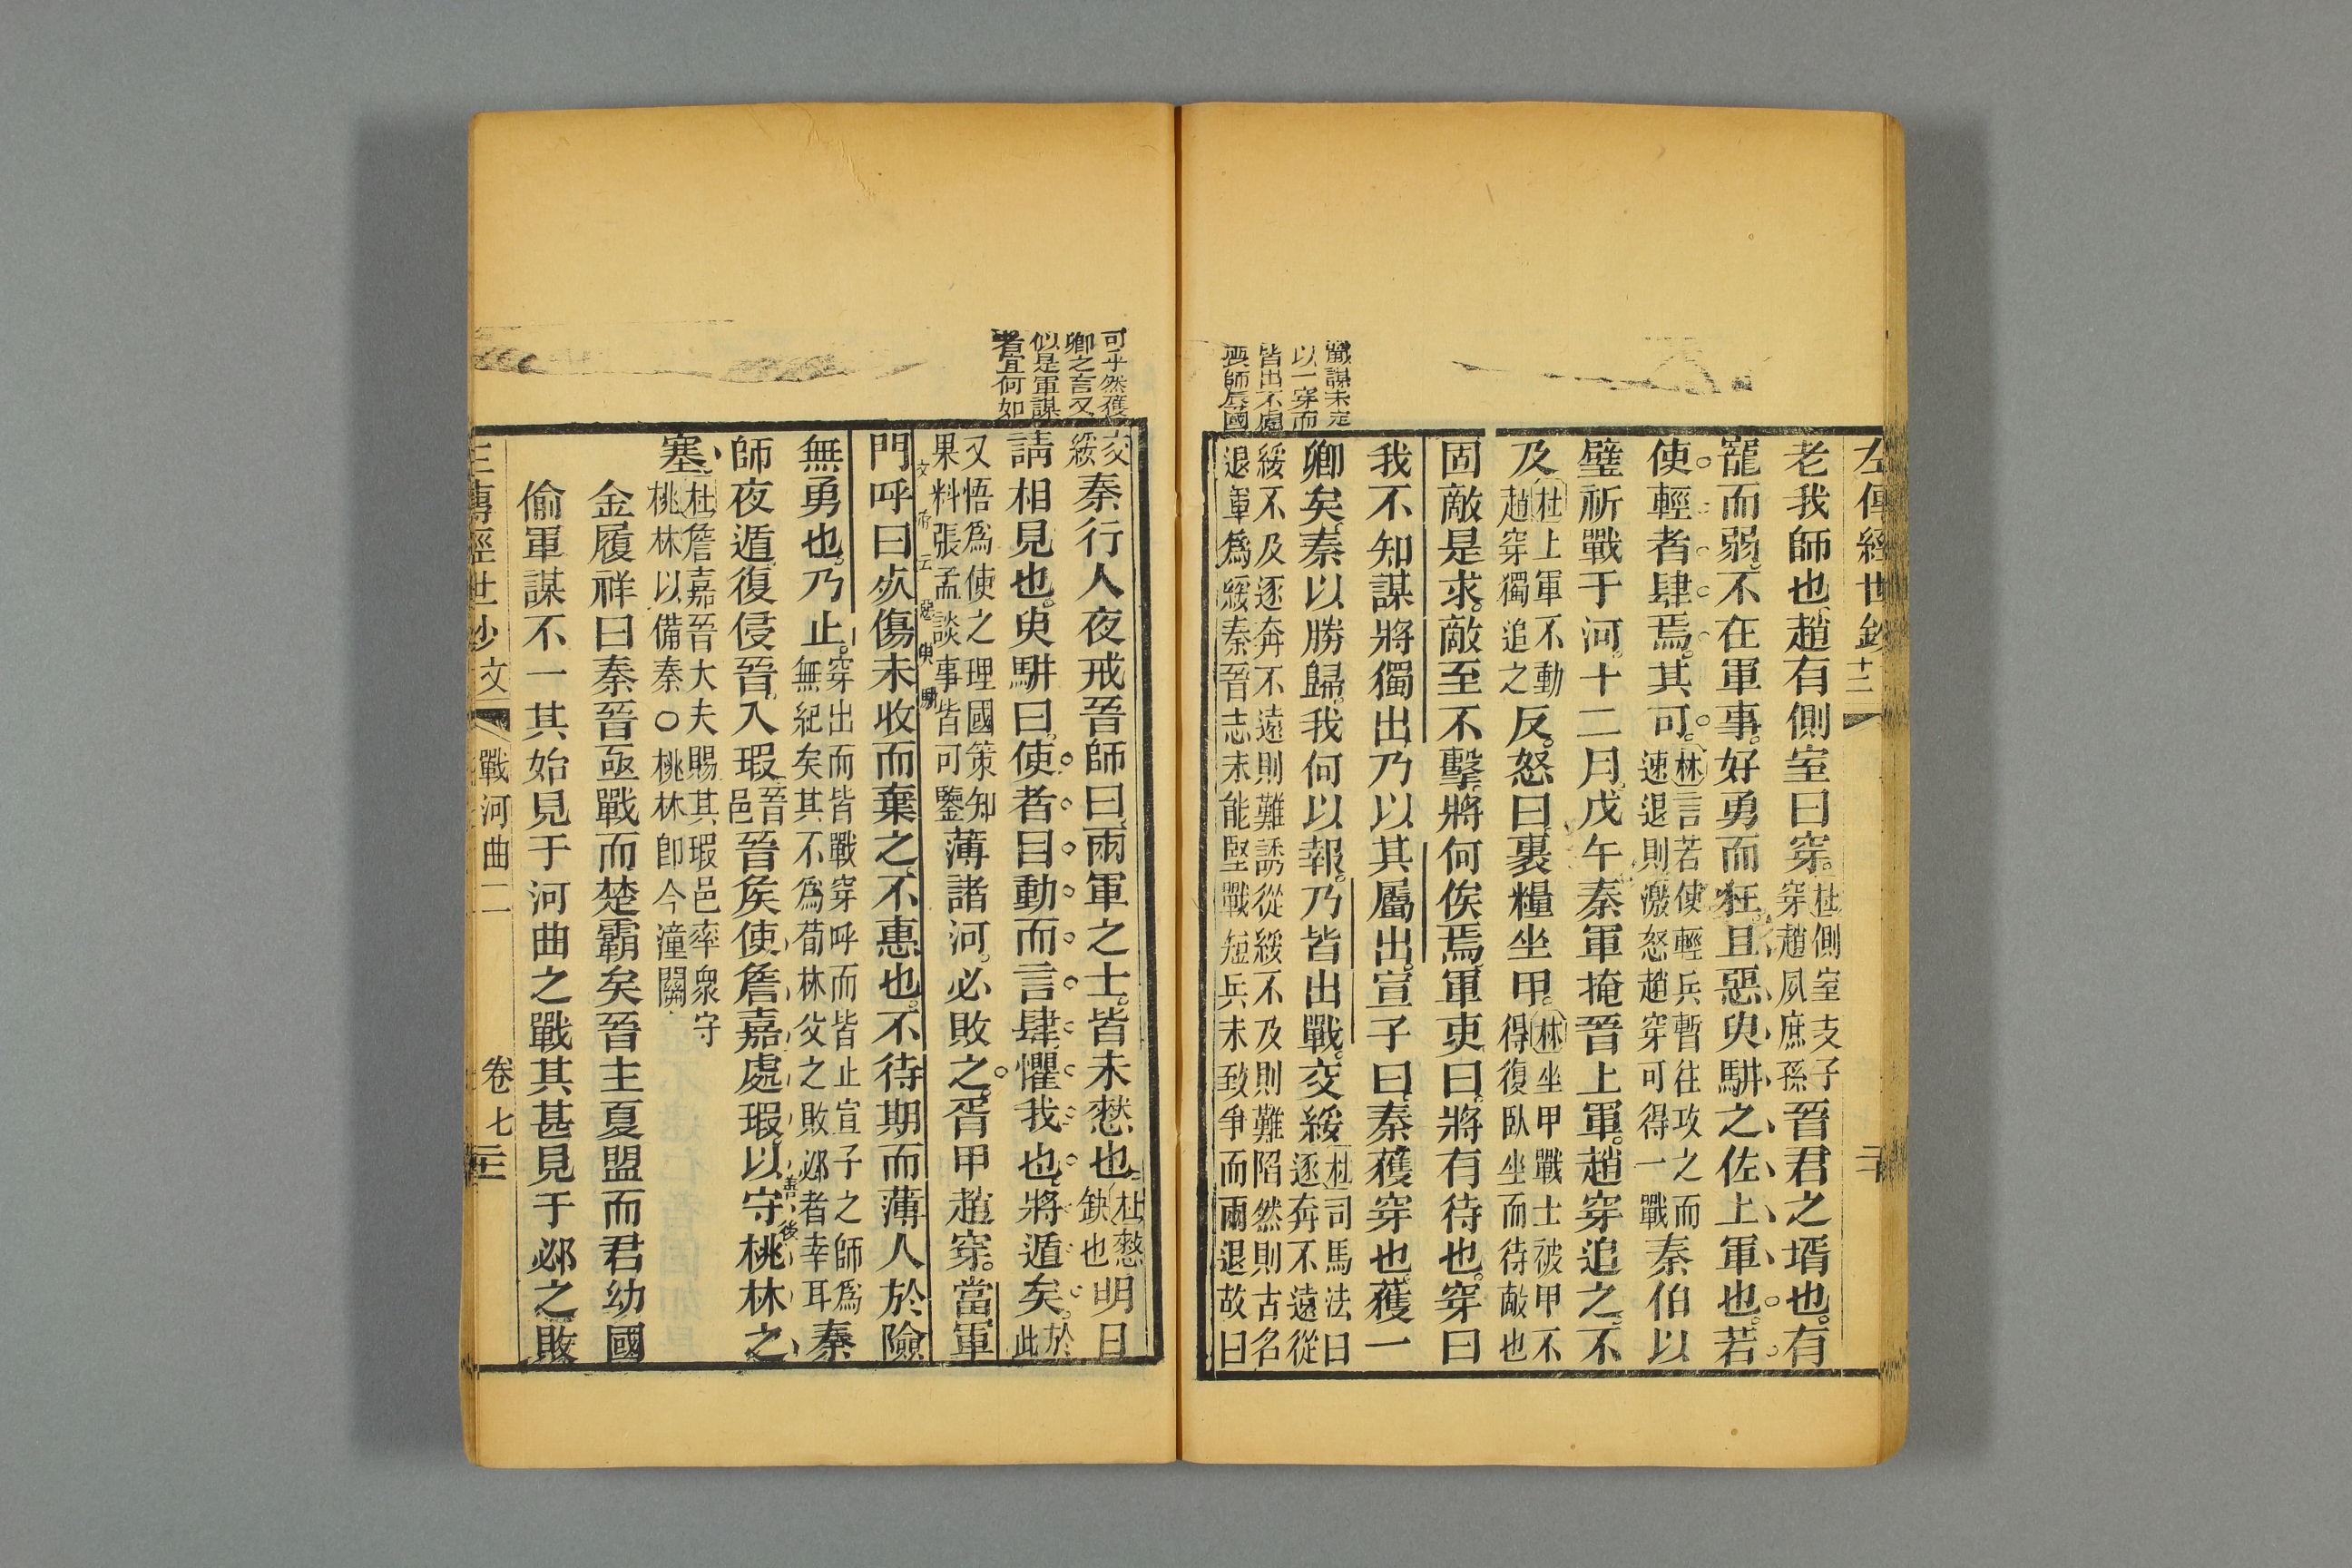 左傳經世鈔 十二 二十
老我師也趙有側室曰穿杜側室支子穿趙夙庶孫晉君之壻也有
寵而弱不在軍事好勇而狂且惡臾駢之佐上軍也若
使輕者肆焉其可林言若使輕兵暫往攻之而速退則激怒趙穿可得一戰秦伯以
璧祈戰于河十二月戊午秦軍掩晉上軍趙穿追之不
及杜上軍不動趙穿獨追之反怒曰裹糧坐甲林坐甲戰士被甲不得復臥坐而待敵也
固敵是求敵至不擊將何俟焉軍吏曰將有待也穿曰
我不知謀將獨出乃以其屬出宣子曰秦獲穿也獲一
卿矣秦以勝歸我何以報乃皆出戰交綏杜司馬法曰逐奔不遠從
綏不及逐奔不遠則難誘從綏不及則難陷然則古名
退軍為綏秦晉志未能堅戰短兵未致爭而兩退故曰
謀未定
以一穿而
皆出不慮
喪師辱國
可乎然獲
卿之言又
似是軍謀
者宜何如
交綏秦行人夜戒晉師曰兩軍之士皆未憖也杜憖缺也明日
請相見也臾駢曰使者目動而言肆懼我也將遁矣於此
又悟為使之理國策知果料張孟談事皆可鑒薄諸河必敗之胥甲趙穿當軍
門呼曰死傷未收而棄之不惠也不待期而薄人於險
無勇也乃止穿出而皆戰穿呼而皆止宣子之師為無紀矣其不為荀林父之敗邲者幸耳秦
師夜遁復侵晉入瑕晉邑晉侯使詹嘉處瑕以守桃林之
善後
塞杜詹嘉晉大夫賜其瑕邑率眾守桃林以備秦○桃林即今潼關
金履祥曰秦晉亟戰而楚霸矣晉主夏盟而君幼國
偷軍謀不一其始見于河曲之戰其甚見于邲之敗
左傳經世鈔 文 戰河曲二 卷七